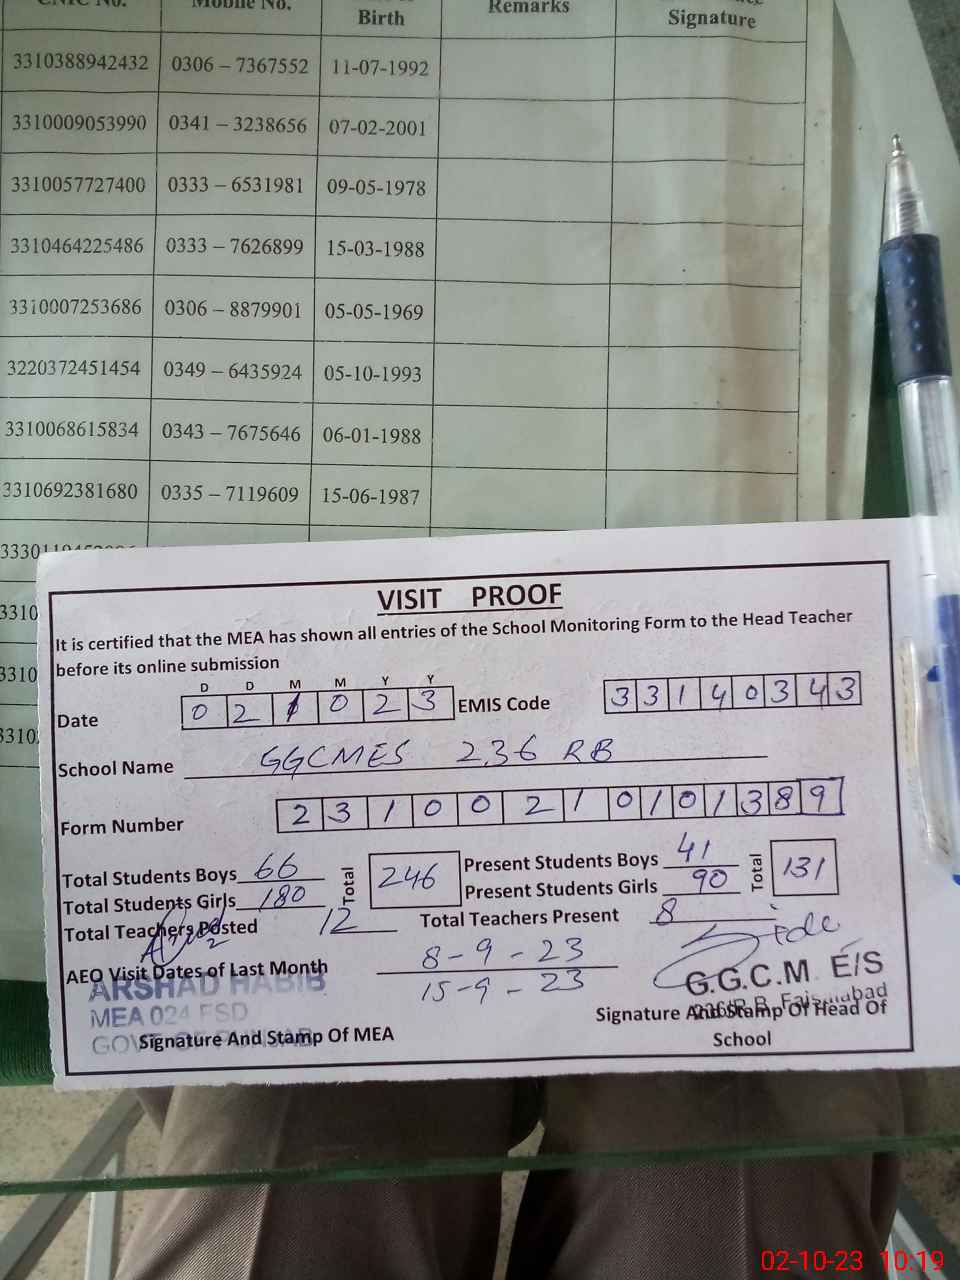 CNIC No. Mobile No. Birth Remarks Signature
3310388942432 0306 – 7367552 11-07-1992
3310009053990 0341 – 3238656 07-02-2001
3310057727400 0333 – 6531981 09-05-1978
3310464225486 0333 – 7626899 15-03-1988
3310007253686 0306 – 8879901 05-05-1969
3220372451454 0349 – 6435924 05-10-1993
3310068615834 0343 – 7675646 06-01-1988
3310692381680 0335 – 7119609 15-06-1987
3310
3310
3310
VISIT PROOF
It is certified that the MEA has shown all entries of the School Monitoring Form to the Head Teacher
before its online submission
D D M M Y Y
Date 0 2 1 0 2 3 EMIS Code 3 3 1 4 0 3 4 3
School Name GGCMES 236 RB
Form Number 2 3 1 0 0 2 1 0 1 0 1 3 8 9
Total Students Boys 66 Total 246 Present Students Boys 41 Total 131
Total Students Girls 180 Present Students Girls 90
Total Teachers Posted 12 Total Teachers Present 8
AEO Visit Dates of Last Month 8-9-23
15-9-23
ARSHAD HABIB
MEA 024 FSD
GOVT OF PUNJAB
Signature And Stamp Of MEA
G.G.C.M. E/S
236/R.B. Faisalabad
Signature And Stamp Of Head Of
School
02-10-23 10:19